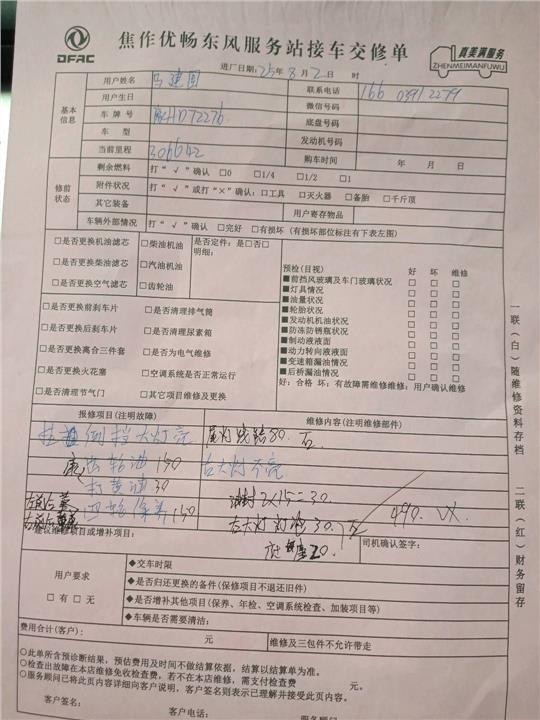 DFAC
焦作优畅东风服务站接车交修单
真美满服务
ZHENMEIMANFUWU
进厂日期：25年8月2日 时
基本信息
用户姓名 马建国 联系电话 166 0391 2279
用户生日 微信号码
车牌号 豫HD7227b 底盘号码
车型 发动机号码
当前里程 306642 购车时间 年 月 日
修前状态
剩余燃料 打“√”确认 □0 □1/4 □1/2 □1
附件状况 打“√”或打“×”确认：□工具 □灭火器 □备胎 □千斤顶
其它装备 用户寄存物品
车辆外部情况 打“√”确认 □完好 □有损坏（有损坏部位标注有下表左图）
□是否更换机油滤芯 □柴油机油 是否定件：是□否□
明细：
□是否更换柴油滤芯 □汽油机油
□是否更换空气滤芯 □齿轮油
预检(目视) 好 坏 维修
■前挡风玻璃及车门玻璃状况 □ □ □
■灯具情况 □ □ □
■油量状况 □ □ □
■轮胎状况 □ □ □
■发动机机油状况 □ □ □
■防冻防锈瓶状况 □ □ □
■制动液液面 □ □ □
■动力转向液液面 □ □ □
■变速箱漏油情况 □ □ □
■后桥漏油情况 □ □ □
好：合格 坏：有故障需维修维修：用户确认维修
□是否更换前刹车片 □是否清理排气筒
□是否更换后刹车片 □是否清理尿素箱
□是否更换离合三件套 □是否为电气维修
□是否更换火花塞 □空调系统是否正常运行
□是否清理节气门 □其它项目维修及更换
报修项目(注明故障) 维修内容(注明维修部件)
挂 倒挡大灯亮 尾灯线路80. 右
齿轮油 150 右大灯不亮
打黄油 30
四轮保养 150 油封2×15=30
右大灯灯泡30.
490.
20.
建议维修项目或增补项目： 司机确认签字：
用户要求
□有 □无
◆交车时限
◆是否归还更换的备件(保修项目不退还旧件)
◆是否增补其他项目(保养、年检、空调系统检查、加装项目等)
◆车辆是否需要清洁：
费用合计(客户)： 元 维修及三包件不允许带走
○此单所含预诊断结果，预估费用及时间不做结算依据，结算以结算单为准。
○检查出故障在本店维修免收检查费，若不在本店维修，需支付检查费 元。
○服务顾问已将此页内容详细向客户说明，客户签名则表示已理解并接受此页内容。
客户签名： 客户电话： 服务顾问：
一联（白）随维修资料存档
二联（红）财务留存